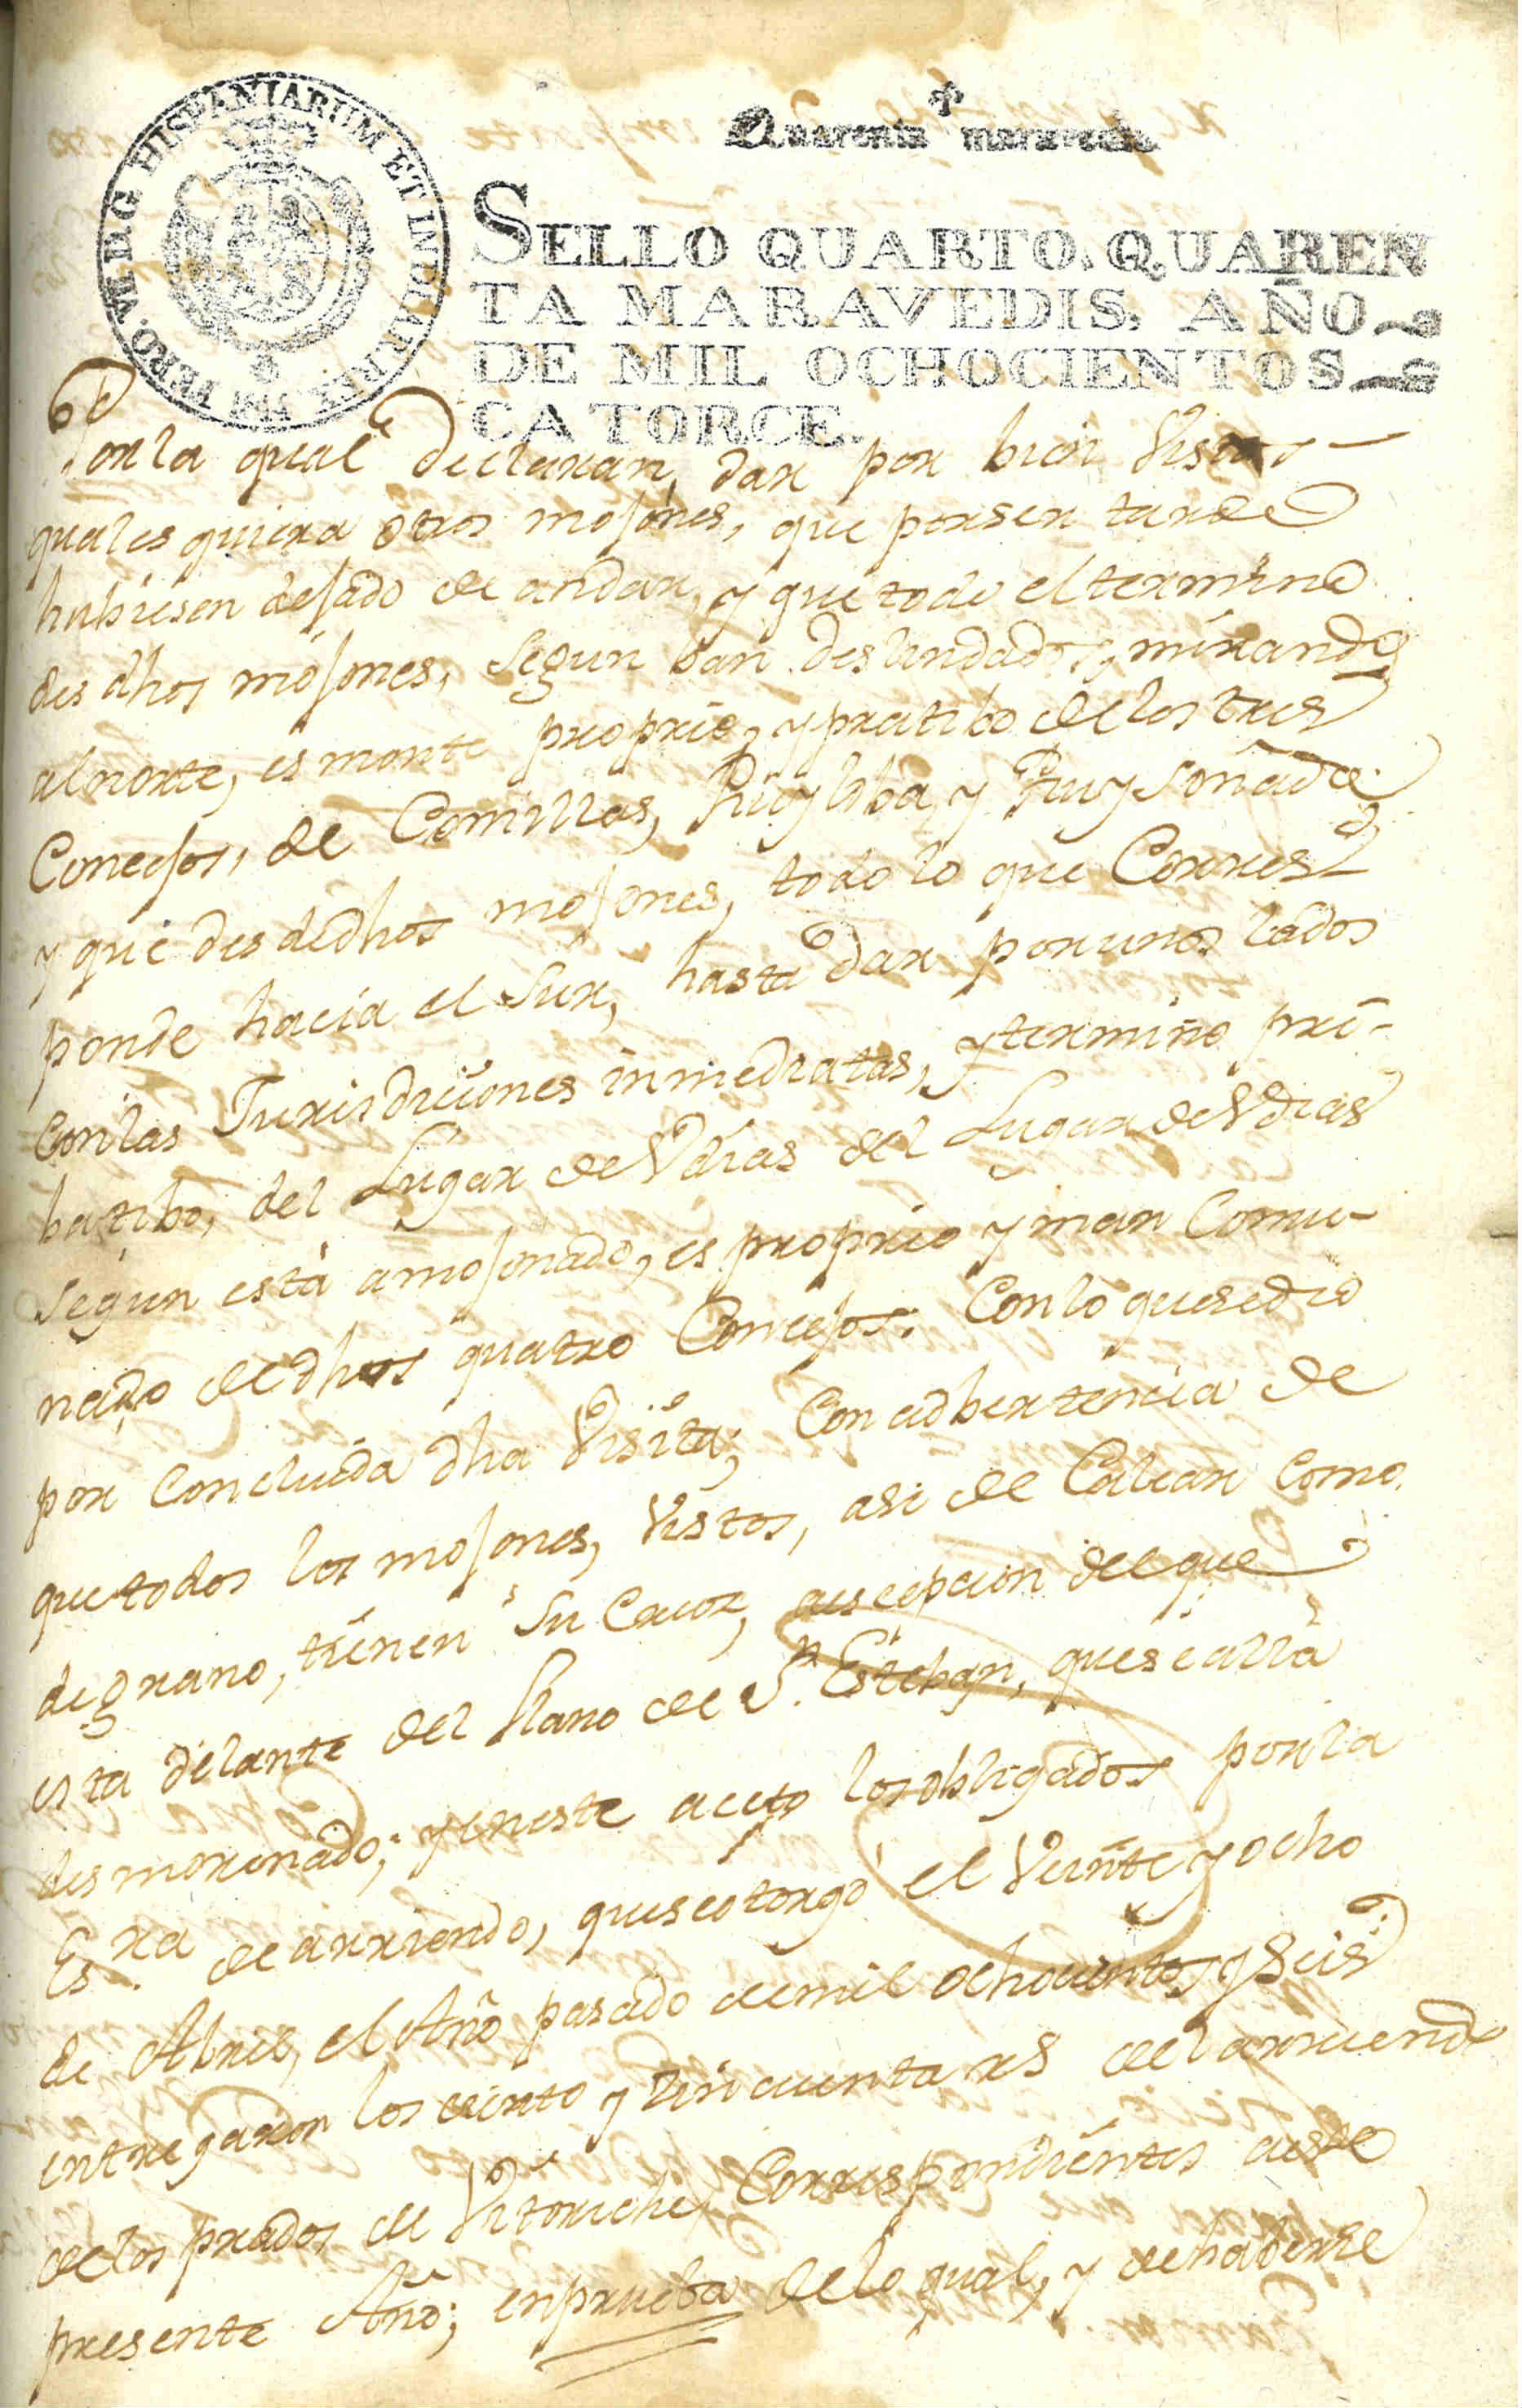 FERD. VII D.G. HISPANIARUM ET INDIAR. REX. 1814
Quarenta maravedis
SELLO QUARTO. QUAREN
TA MARAVEDIS, AÑO
DE MIL OCHOCIENTOS
CATORCE.
Por la qual declaran, dar por bien Vistos
quales quiera otros mojones, que por ser tarde
hubiesen dejado de andar, y que todo el termino
des dhos mojones, segun ban deslindados, mirando
al norte, es monte proprio, y pratibo de los tres
Concejos, de Comillas, Ruyloba, y Ruyseñada
y que des dedhos mojones, todo lo que Corres
ponde hacia el Sur, hasta dar por unos lados
con las Jurisdiciones inmediatas, y termino pri-
batibo, del Lugar de Vdias del Lugar de Vdias
segun está amojonado, es proprio y man Comu-
nado de dhos quatro Concejos. Con lo que se dio
por concluida dha Visita; Con adbertencia de
que todos los mojones, Vistos, asi de Calear como
de grano, tienen su Cruz, a escepcion del que
esta delante del Llano de Sn. Esteban, que se alla
desmoronado; y en este acto los obligados por la
Esra. de arriendo, que se otorgó el Veinte y ocho
de Abril, el Año pasado de mil ochocientos y seis
entregaron los ciento y cincuenta rs del arriendo
de los prados de Vitoriche, Correspondientes a este
presente Año; en prueba de lo qual, y de haberse